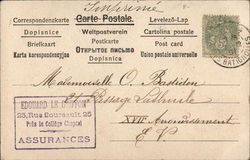 Imprimé
Correspondenzkarte Carte Postale. Levelező-Lap
Dopisnice Weltpostverein Cartolina postale
Briefkaart Postkarte Post card
Karta korespondencyjna ОТКРЫТОЕ ПИСЬМО Union postale universelle
Dopisnica
Mademoiselle O. Bastidon
Passage Lathuile
XVIIe Arrondissement
E V
EDOUARD LE
25, Rue Boursault 25
Près le Collège Chaptal
ASSURANCES
BATIGNOLLES